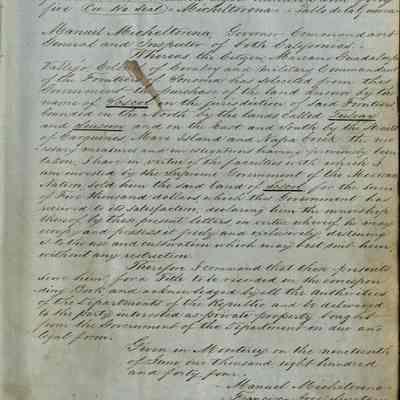 five (L. S.) No Seal = Micheltorena =
Manuel Micheltorena, Governor Commandant
General and Inspector of both Californias.
Whereas the Citizen Mariano Guadalupe
Vallejo Colonel of Cavalry and Military Commandant
of the Frontier of Sonoma has solicited from this
Government the purchase of the land known by the
name of Soscol in the jurisdiction of said Frontier
bounded on the North by the lands called Tulucay
and Suscun and on the East and South by the Straits
of Carquinez, Mare Island and Napa Creek. The nec-
essary measures and investigations having previously been
taken, I have in virtue of the faculties with which I
am invested by the Supreme Government of the Mexican
Nation, sold him the said land of Soscol for the sum
of Five thousand dollars which this Government has
received to its satisfaction, declaring him the ownership
thereof by these present letters, in virtue whereof he may
occupy and possess it freely and exclusively destining
it to the use and cultivation which may best suit him
without any restriction.
Therefore I command that these presents
serve him for a Title to be recorded in the correspon-
ding Book and acknowledged by all the authorities
of the Departments of the Republic and be delivered
to the party interested as private property bought
from the Government of the Department in due and
legal form.
Given in Monterey on the nineteenth
of June one thousand eight hundred
and forty four.
Manuel Micheltorena
Francisco